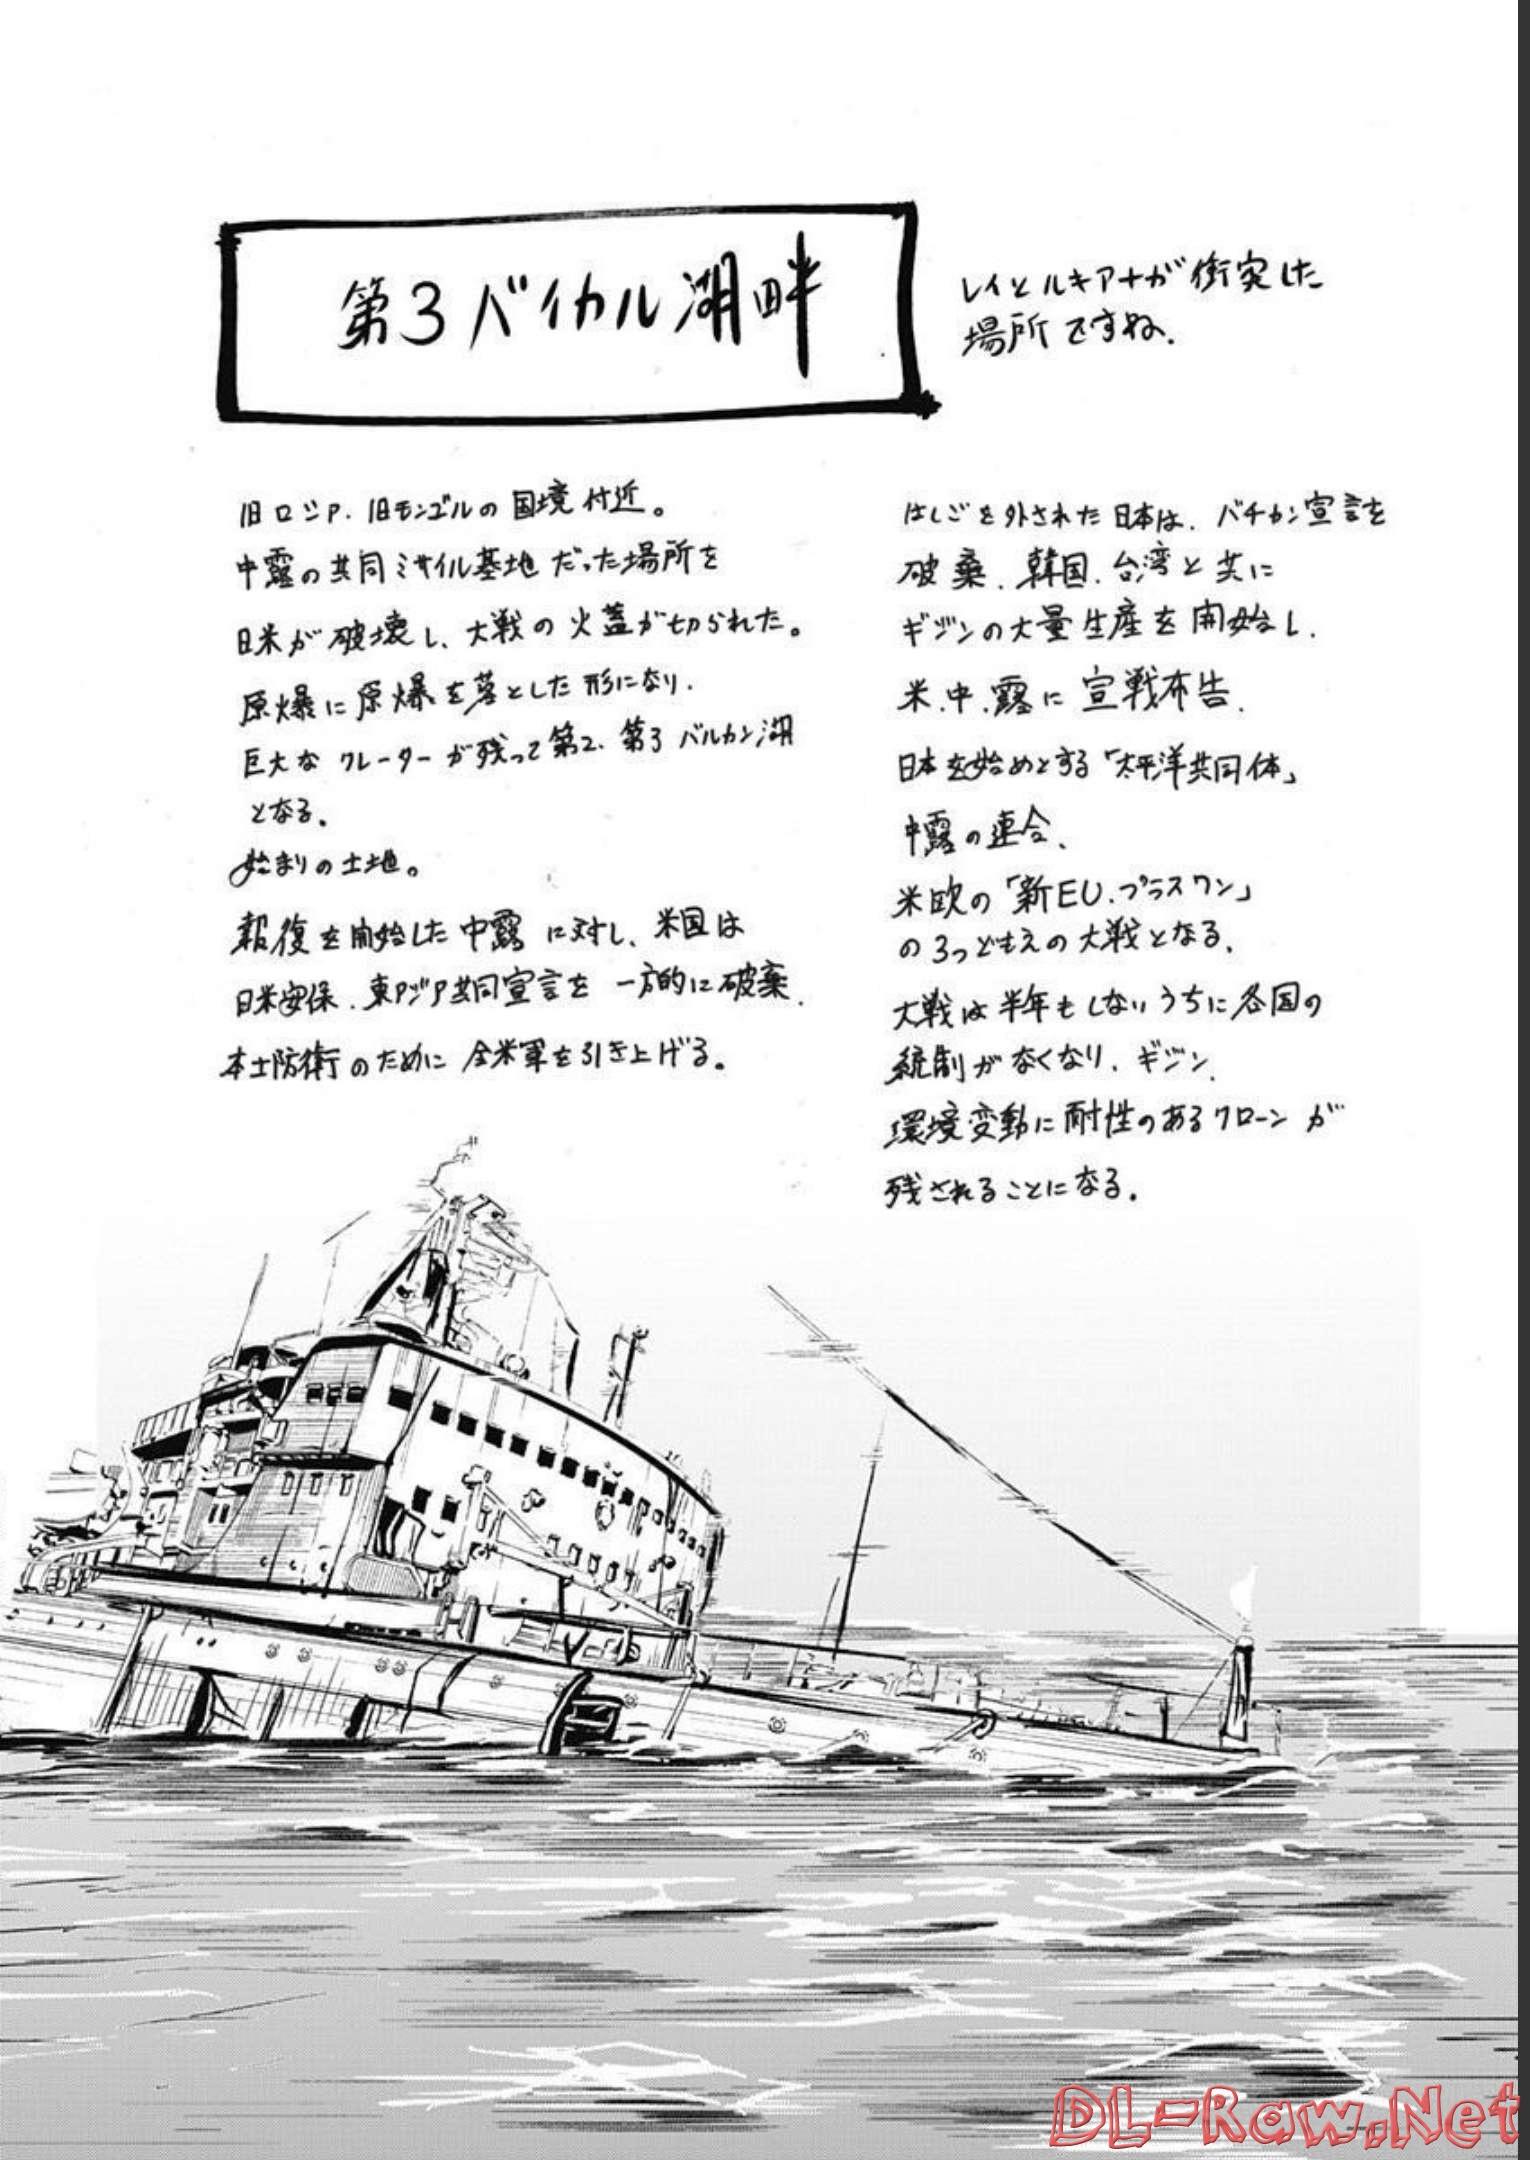 第3バイカル湖畔
レイとルキアナが衝突した
場所ですね.
旧ロシア.旧モンゴルの国境付近。
中露の共同ミサイル基地だった場所を
日米が破壊し、大戦の火蓋が切られた。
原爆に原爆を落とした形になり.
巨大なクレーターが残って第2、第3バルカン湖
となる。
始まりの土地。
報復を開始した中露に対し、米国は
日米安保.東アジア共同宣言を一方的に破棄.
本土防衛のために全米軍を引き上げる。
はしごを外された日本は.バチカン宣言を
破棄.韓国.台湾と共に
ギジンの大量生産を開始し.
米.中.露に宣戦布告.
日本を始めとする「太平洋共同体」
中露の連合、
米欧の「新EU.プラスワン」
の3つどもえの大戦となる.
大戦は半年もしないうちに各国の
統制がなくなり.ギジン.
環境変動に耐性のあるクローンが
残されることになる.
DL-Raw.Net